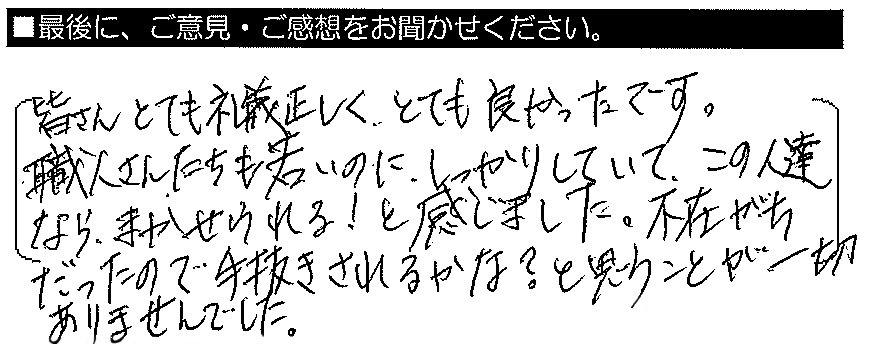 ■最後に、ご意見・ご感想をお聞かせください。
皆さんとても礼義正しく、とても良かったです。
職人さんたちも若いのに、しっかりしていて、この人達
なら、まかせられる！と感じました。不在がち
だったので手抜きされるかな？と思うことが一切
ありませんでした。